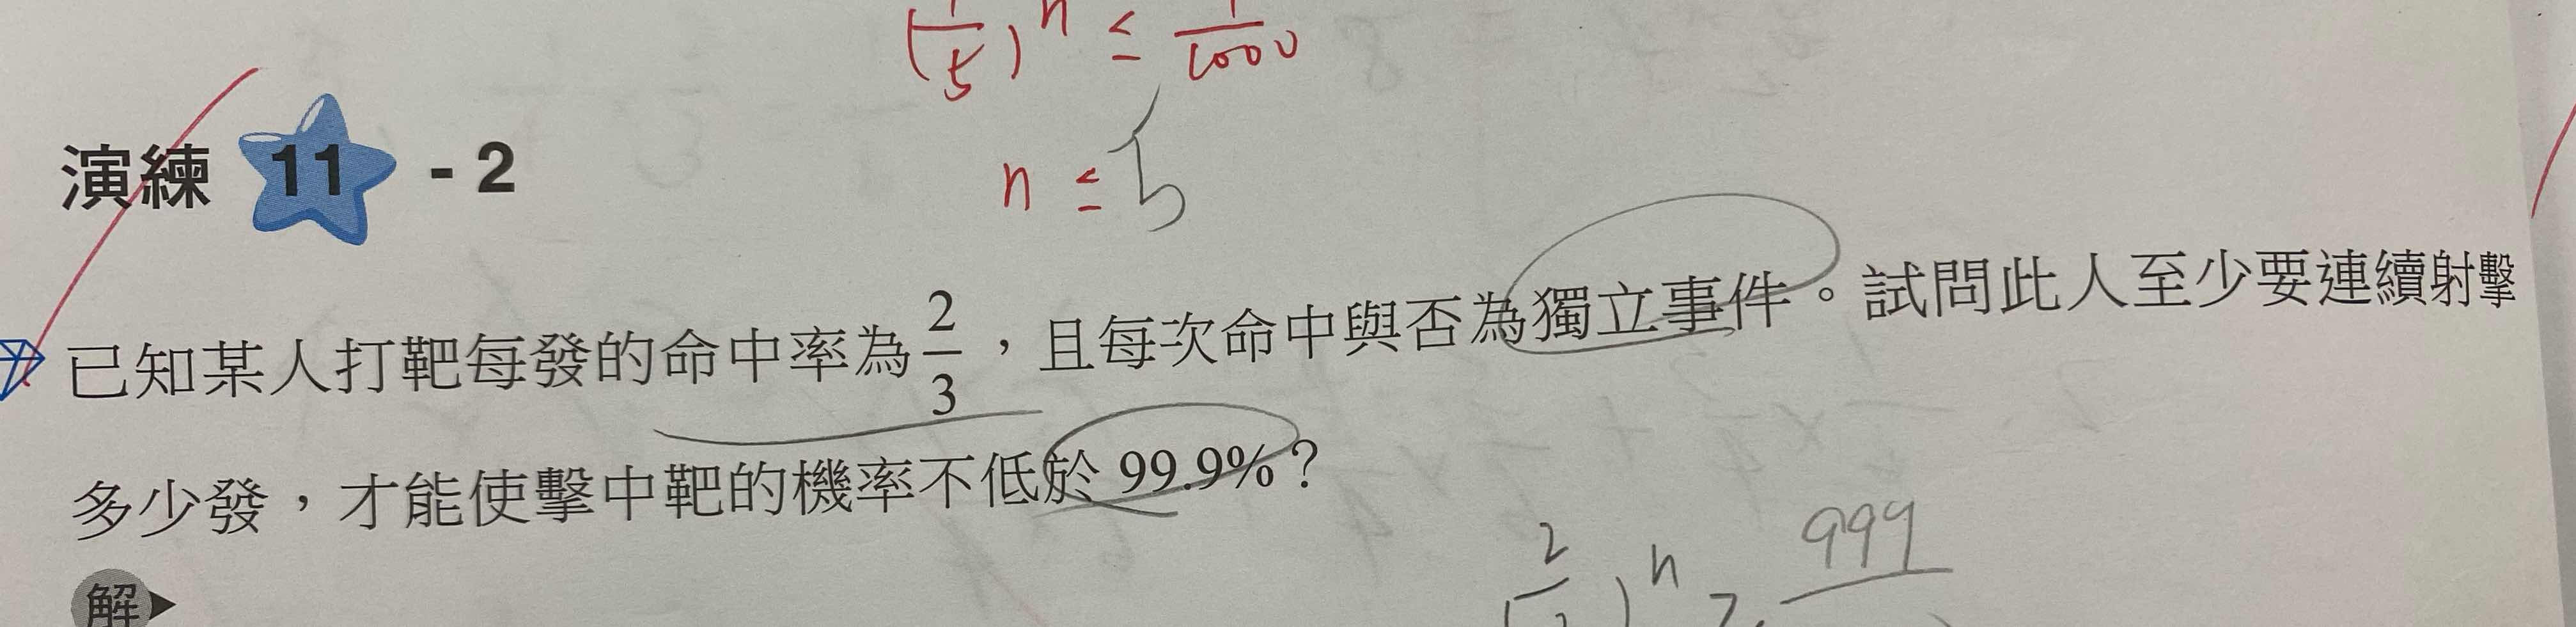 (1/5)ⁿ ≤ 1/1000
n ≤ 5
演練 11 - 2
已知某人打靶每發的命中率為 2/3，且每次命中與否為獨立事件。試問此人至少要連續射擊
多少發，才能使擊中靶的機率不低於 99.9%？
999
解